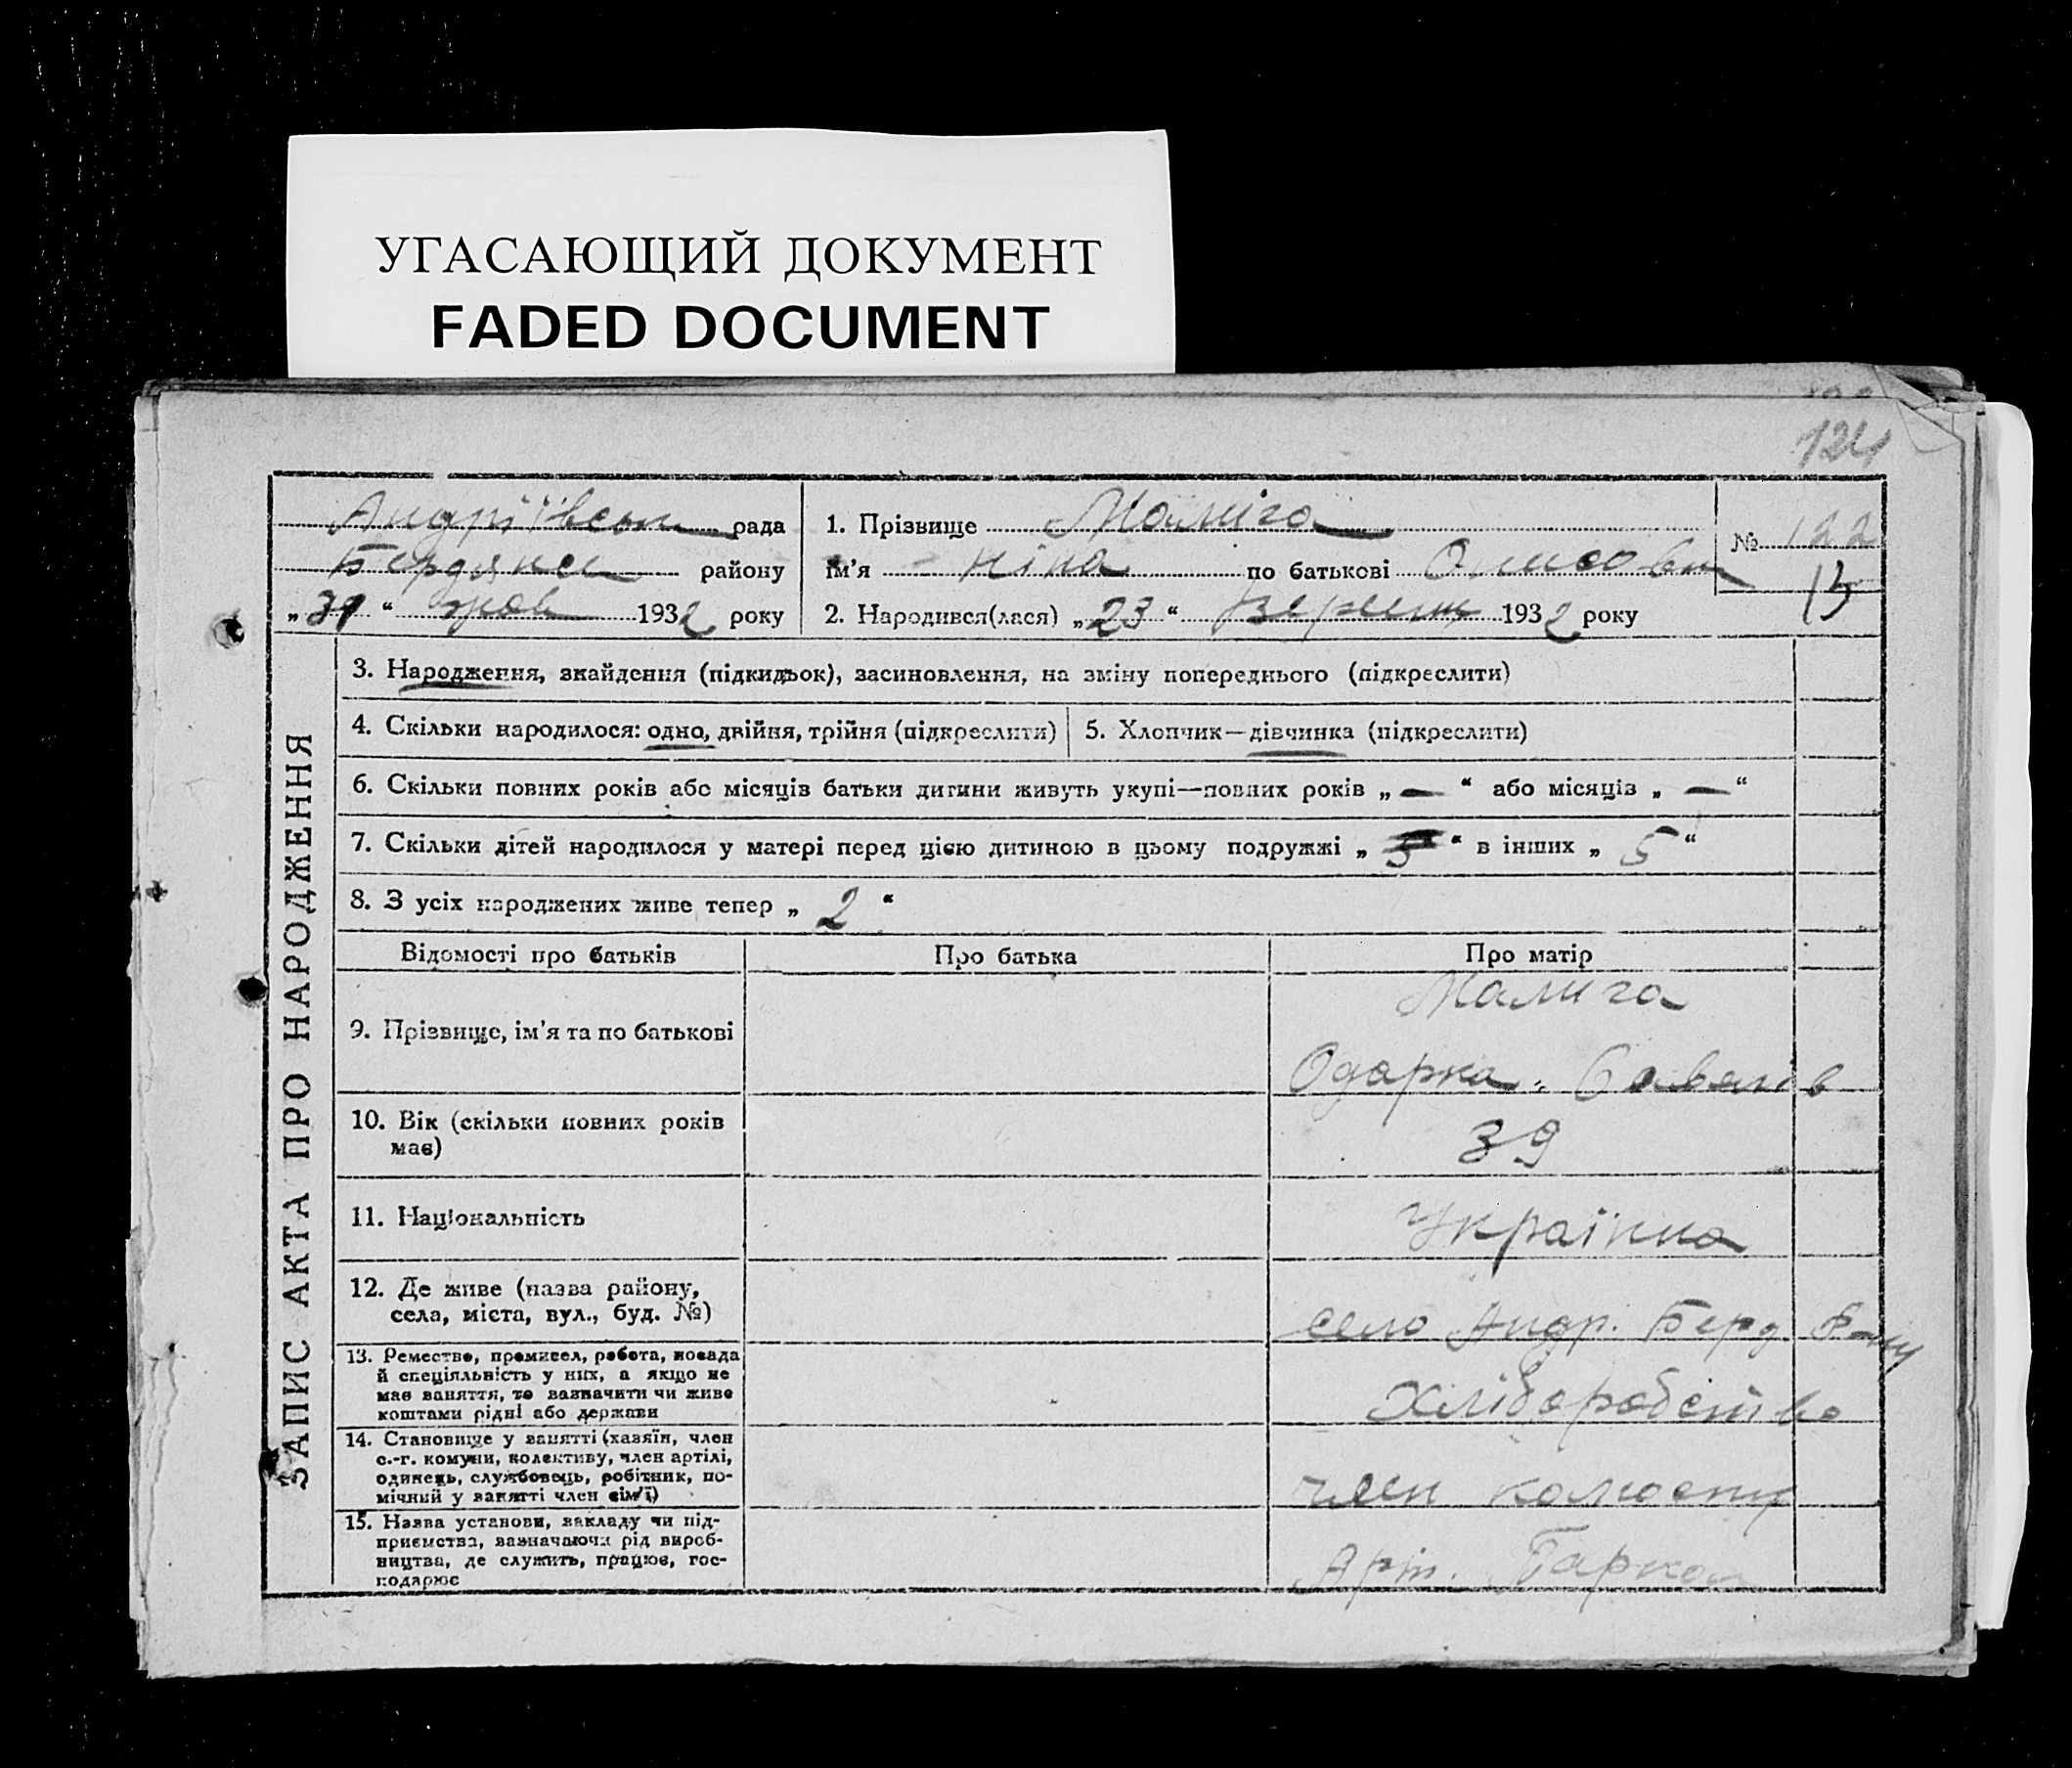 УГАСАЮЩИЙ ДОКУМЕНТ
FADED DOCUMENT
124
Андріївськ рада
Бердянськ району
„31“ жов 1932 року
1. Прізвище Малига
ім'я Ніна по батькові
2. Народився(лася) „23“ Вересня 1932 року
№ 122
13
ЗАПИС АКТА ПРО НАРОДЖЕННЯ
3. Народження, знайдення (підкидьок), засиновлення, на зміну попереднього (підкреслити)
4. Скільки народилося: одно, двійня, трійня (підкреслити)
5. Хлопчик—дівчинка (підкреслити)
6. Скільки повних років або місяців батьки дитини живуть укупі—повних років „—“ або місяців „—“
7. Скільки дітей народилося у матері перед цією дитиною в цьому подружжі „ “ в інших „5“
8. З усіх народжених живе тепер „2“
Відомості про батьків
Про батька
Про матір
9. Прізвище, ім'я та по батькові
Малига
Одарка
10. Вік (скільки повних років
має)
39
11. Національність
Українка
12. Де живе (назва району,
села, міста, вул., буд. №)
село Андр. Берд Р-ну
13. Ремество, промисел, робота, посада
й спеціяльність у них, а якщо не
має заняття, то зазначити чи живе
коштами рідні або держави
Хліборобство
14. Становище у занятті (хазяїн, член
с.-г. комуни, колективу, член артілі,
одинець, службовець, робітник, по-
мічний у занятті член сім'ї)
член колгоспу
15. Назва установи, закладу чи під-
приємства, зазначаючи рід вироб-
ництва, де служить, працює, гос-
подарює
Арт.